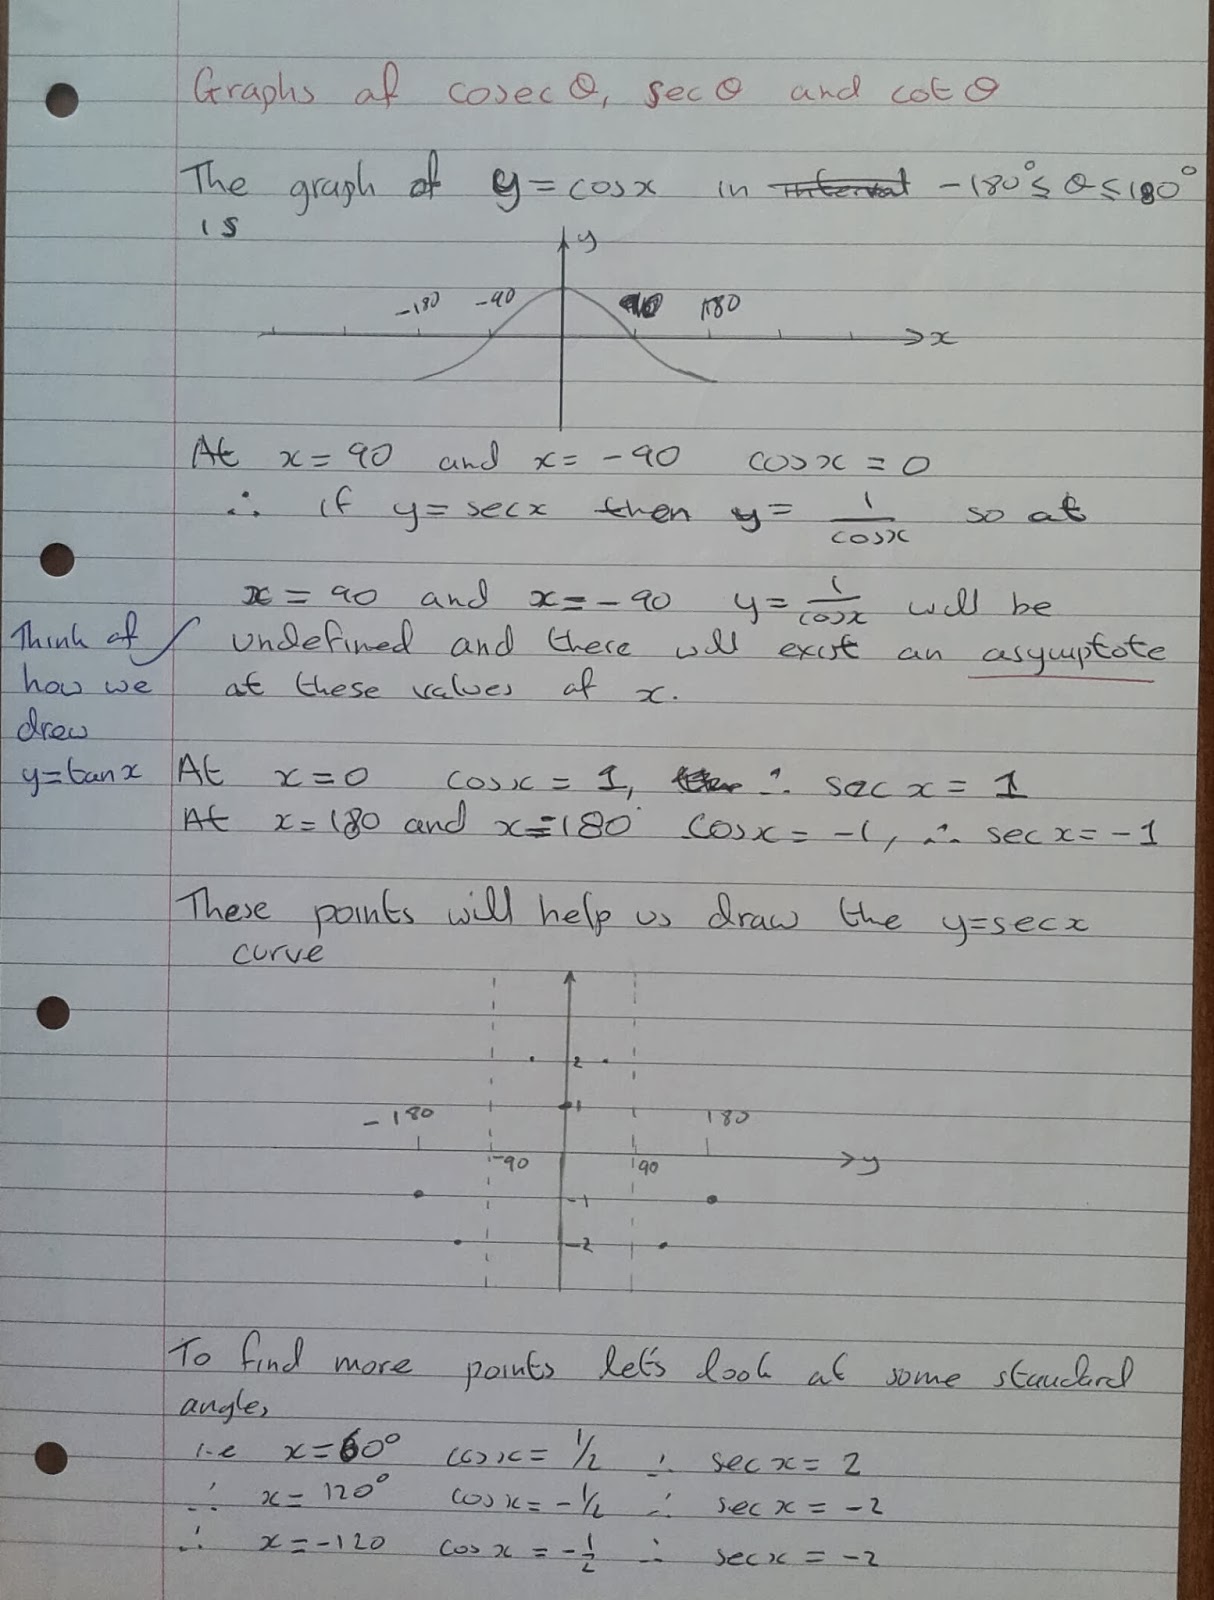 Graphs of cosec θ, sec θ and cot θ
The graph of y = cosx in interval -180° ≤ θ ≤ 180°
is
y
-180 -90 90 180
x
At x = 90 and x = -90 cosx = 0
∴ if y = secx then y = 1/cosx so at
x = 90 and x = -90 y = 1/cosx will be
undefined and there will exist an asymptote
at these values of x.
Think of
how we
drew
y=tanx
At x=0 cosx = 1, ∴ sec x = 1
At x=180 and x=-180 cosx = -1, ∴ sec x = -1
These points will help us draw the y=secx
curve
2
1
-180 180
-90 90 y
-1
-2
To find more points let's look at some standard
angles
i.e x=60° cosx = 1/2 ∴ sec x = 2
∴ x = 120° cosx = -1/2 ∴ sec x = -2
∴ x = -120 cos x = -1/2 ∴ sec x = -2